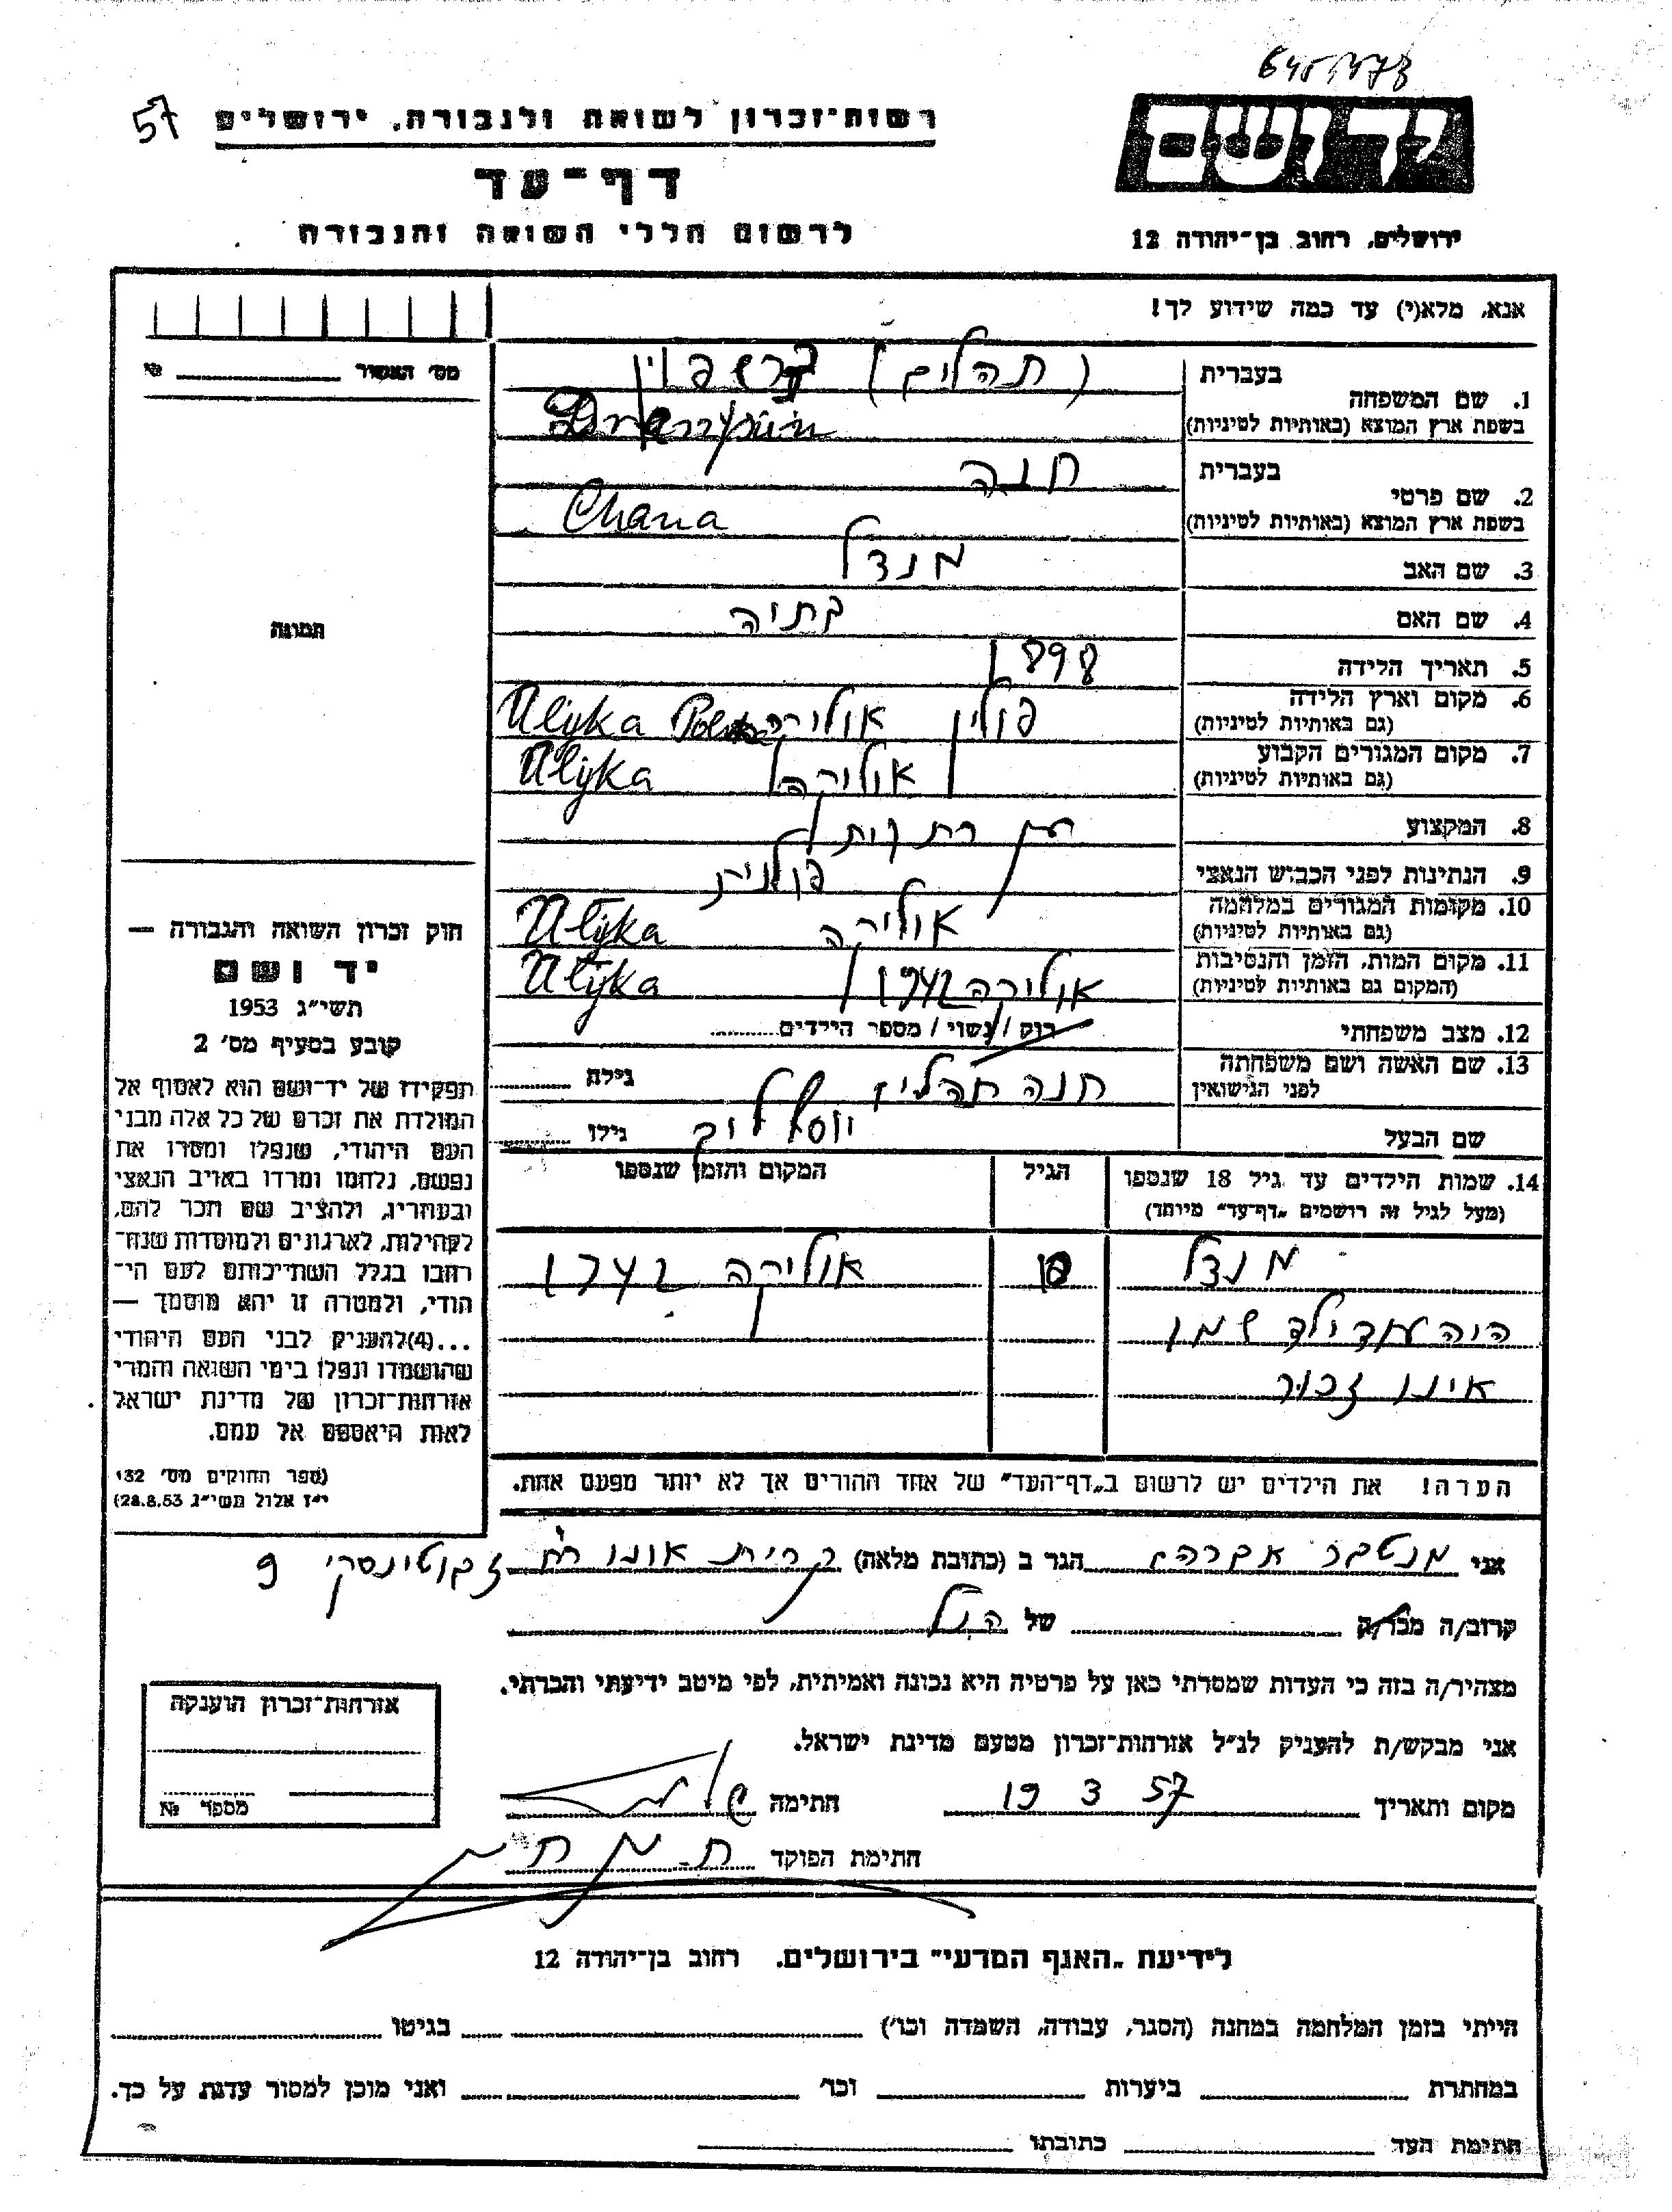 57
רשות־זכרון לשואה ולגבורה, ירושלים
דף־עד
לרשום חללי השואה והגבורה
יד ושם
ירושלים, רחוב בן־יהודה 12
אנא, מלא(י) עד כמה שידוע לך!
מס' האשור
1. שם המשפחה
בעברית (תהלים)
בשפת ארץ המוצא (באותיות לטיניות)
2. שם פרטי
בעברית חנה
בשפת ארץ המוצא (באותיות לטיניות) Chana
3. שם האב מנדל
4. שם האם בתיה
5. תאריך הלידה 1898
6. מקום וארץ הלידה
(גם באותיות לטיניות) פולין אוליקה
7. מקום המגורים הקבוע
(גם באותיות לטיניות) אוליקה
8. המקצוע
9. הנתינות לפני הכבוש הנאצי פולנית
10. מקומות המגורים במלחמה
(גם באותיות לטיניות) אוליקה
11. מקום המות, הזמן והנסיבות
(המקום גם באותיות לטיניות) אוליקה 1942
12. מצב משפחתי רווק / נשוי / מספר הילדים
13. שם האשה ושם משפחתה
לפני הנישואין חנה תהלים גילה
שם הבעל גילו
14. שמות הילדים עד גיל 18 שנספו
(מעל לגיל זה רושמים „דף־עד" מיוחד)
הגיל
המקום והזמן שנספו
מנדל אוליקה 1942
היה עוד ילד שמו
אינו זכור
הערה! את הילדים יש לרשום ב„דף־העד" של אחד ההורים אך לא יותר מפעם אחת.
תמונה
חוק זכרון השואה והגבורה —
יד ושם
תשי"ג 1953
קובע בסעיף מס' 2
תפקידו של יד־ושם הוא לאסוף אל
המולדת את זכרם של כל אלה מבני
העם היהודי, שנפלו ומסרו את
נפשם, נלחמו ומרדו באויב הנאצי
ובעוזריו, ולהציב שם וזכר להם,
לקהילות, לארגונים ולמוסדות שנח־
רבו בגלל השתייכותם לעם הי־
הודי, ולמטרה זו יהא מוסמך —
...(4) להעניק לבני העם היהודי
שהושמדו ונפלו בימי השואה והמרי
אזרחות־זכרון של מדינת ישראל
לאות היאספם אל עמם.
(ספר החוקים מס' 132
י"ז אלול תשי"ג 28.8.53)
אני אברהם הגר ב (כתובת מלאה) קרית אונו רח' זבוטינסקי 9
קרוב/ה מכר/ה של הנ"ל
מצהיר/ה בזה כי העדות שמסרתי כאן על פרטיה היא נכונה ואמיתית, לפי מיטב ידיעתי והכרתי.
אני מבקש/ת להעניק לנ"ל אזרחות־זכרון מטעם מדינת ישראל.
מקום ותאריך 19 3 57 חתימה
חתימת הפוקד
אזרחות־זכרון הוענקה
מספר №
לידיעת „האגף המדעי" בירושלים, רחוב בן־יהודה 12
הייתי בזמן המלחמה במחנה (הסגר, עבודה, השמדה וכו') בגיטו
במחתרת ביערות וכו' ואני מוכן למסור עדות על כך.
חתימת העד כתובתו